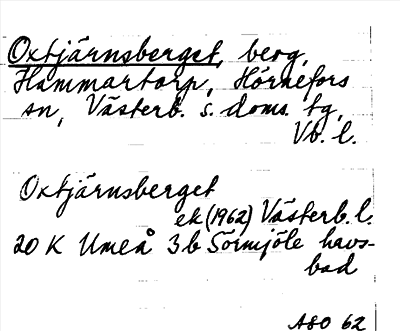 Oxtjärnsberget, berg,
Hammartorp, Hörnefors
sn, Västerb. s. doms. tg,
Vb. l.
Oxtjärnsberget
ek (1962) Västerb. l.
20 K Umeå 3b Sörmjöle havs-
bad
ASO 62